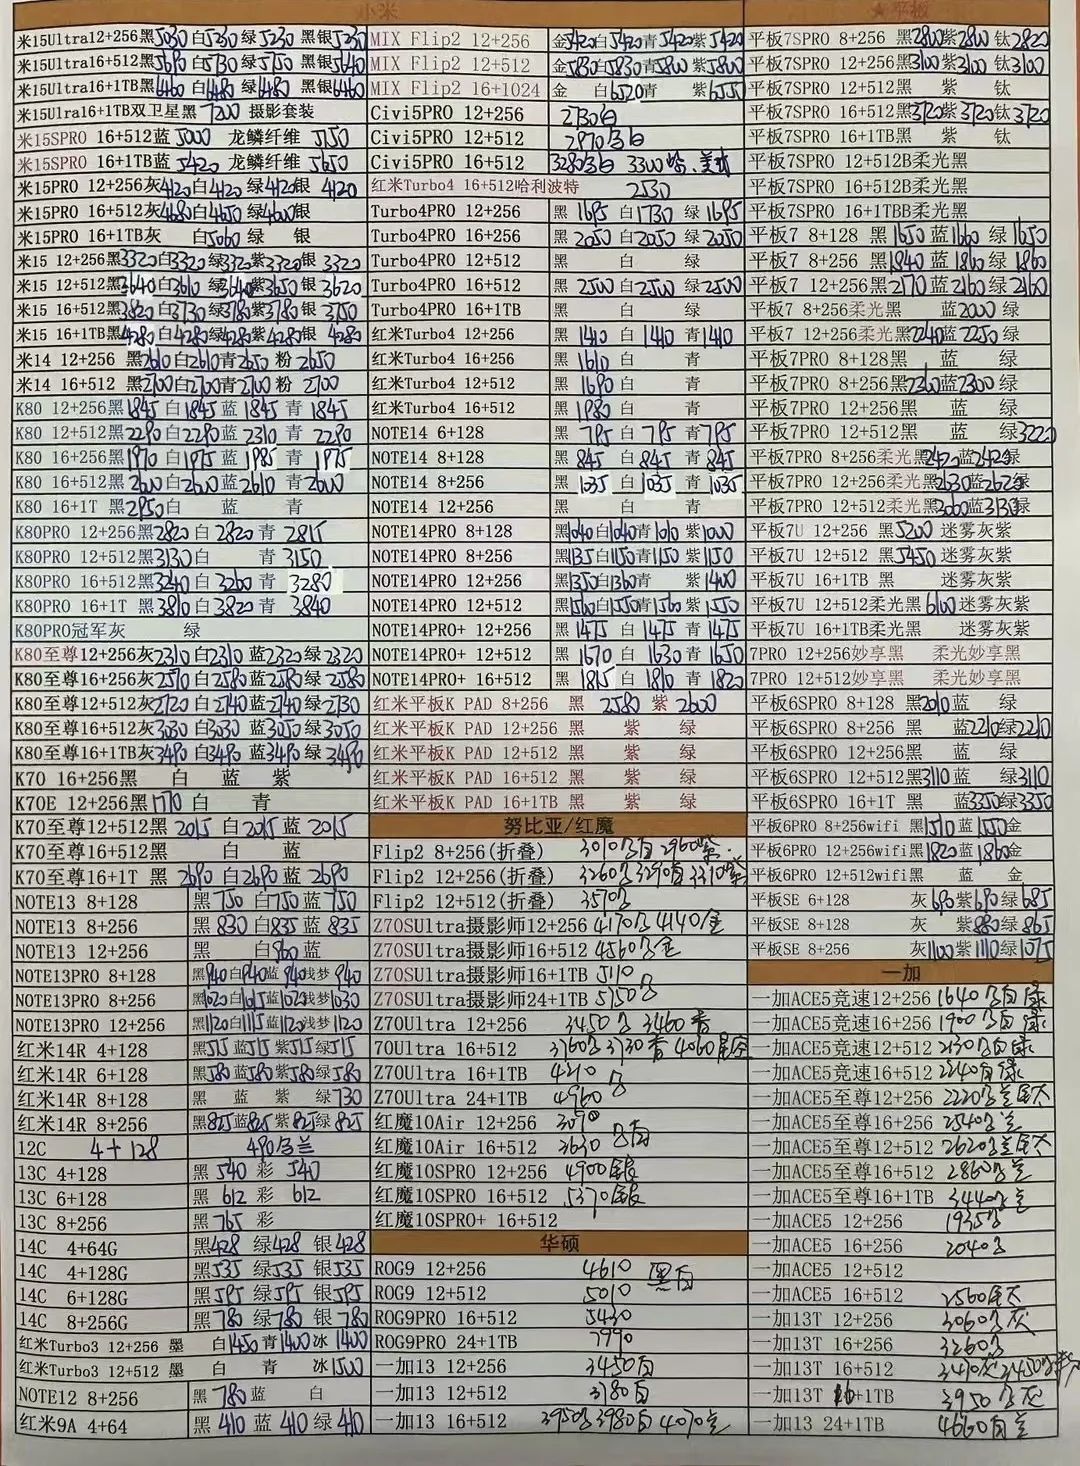 小米
米15Ultra12+256黑5030白5230 绿5230 黑银5230
米15Ultra16+512黑5690白5730 绿5750 黑银5640
米15Ultra16+1TB黑6460白6480绿6480 黑银6460
米15Ulra16+1TB双卫星黑 7200 摄影套装
米15SPRO 16+512蓝 5000 龙鳞纤维 5150
米15SPRO 16+1TB蓝 5420 龙鳞纤维 5650
米15PRO 12+256灰4120白4120 绿4120银 4120
米15PRO 16+512灰4680白4650 绿4600银
米15PRO 16+1TB灰 白5060 绿 银
米15 12+256黑3320白3320绿3320紫3320银 3320
米15 12+512黑3640白3610 绿3640紫3650银 3620
米15 16+512黑3820白3730绿3780紫3780银 3750
米15 16+1TB黑4280白4280绿4280紫4280银 4280
米14 12+256 黑2610白2610青2650 粉 2650
米14 16+512 黑2700白2700青2700 粉 2700
K80 12+256黑1845 白1845 蓝 1845 青 1845
K80 12+512黑2290白2290蓝 2310 青 2290
K80 16+256黑1970 白1975 蓝 1985 青 1975
K80 16+512黑2600白2600蓝2610 青 2600
K80 16+1T 黑2950白 蓝 青
K80PRO 12+256黑2820 白 2820 青 2815
K80PRO 12+512黑3130白 青 3150
K80PRO 16+512黑3240 白3260 青 3280
K80PRO 16+1T 黑3810白3820 青 3840
K80PRO冠军灰 绿
K80至尊12+256灰2310白2310 蓝2320绿 2320
K80至尊16+256灰2570白2580蓝2580绿 2580
K80至尊12+512灰2720 白2740蓝2740绿 2730
K80至尊16+512灰3030 白3030 蓝3050绿3050
K80至尊16+1TB灰3490白3490 蓝3490绿 3490
K70 16+256黑 白 蓝 紫
K70E 12+256黑1170 白 青
K70至尊12+512黑 2015 白2015蓝 2015
K70至尊16+512黑 白 蓝
K70至尊16+1T 黑 2690 白2690 蓝 2690
NOTE13 8+128 黑750 白750 蓝750
NOTE13 8+256 黑 830 白835 蓝 835
NOTE13 12+256 黑 白960 蓝
NOTE13PRO 8+128 黑940白940蓝 940浅梦 940
NOTE13PRO 8+256 黑1020白1015蓝1020浅梦1030
NOTE13PRO 12+256 黑1120白1115蓝1120浅梦 1120
红米14R 4+128 黑515 蓝515 紫515绿515
红米14R 6+128 黑580蓝580 紫580绿580
红米14R 8+128 黑 蓝 紫 绿730
红米14R 8+256 黑825蓝825 紫825绿825
12C 4+128 490黑兰
13C 4+128 黑 540 彩 540
13C 6+128 黑 612 彩 612
13C 8+256 黑 765 彩
14C 4+64G 黑428 绿428 银428
14C 4+128G 黑535 绿535 银535
14C 6+128G 黑595 绿595 银595
14C 8+256G 黑780 绿780 银780
红米Turbo3 12+256 墨 白1450青1400冰 1400
红米Turbo3 12+512 墨 白 青 冰1500
NOTE12 8+256 黑 780蓝 白
红米9A 4+64 黑 410 蓝 410 绿 410
MIX Flip2 12+256 金5420白5420青5420紫5420
MIX Flip2 12+512 金5830白5830青5800紫5800
MIX Flip2 16+1024 金 白6520青 紫6550
Civi5PRO 12+256 2730白
Civi5PRO 12+512 2970黑白
Civi5PRO 16+512 3280黑白 3300
红米Turbo4 16+512哈利波特 2530
Turbo4PRO 12+256 黑 1695 白1730 绿 1695
Turbo4PRO 16+256 黑 2050 白2050 绿2050
Turbo4PRO 12+512 黑 白 绿
Turbo4PRO 16+512 黑 2500 白2500 绿2500
Turbo4PRO 16+1TB 黑 白 绿
红米Turbo4 12+256 黑 1410 白 1410 青1410
红米Turbo4 16+256 黑 1610 白 青
红米Turbo4 12+512 黑 1690 白 青
红米Turbo4 16+512 黑 1980 白 青
NOTE14 6+128 黑 795 白 795 青795
NOTE14 8+128 黑 845 白 845 青845
NOTE14 8+256 黑 1035 白 1035 青 1035
NOTE14 12+256 黑 白 青
NOTE14PRO 8+128 黑1040白1040青1010 紫1000
NOTE14PRO 8+256 黑1135白1150青1150 紫1150
NOTE14PRO 12+256 黑1350白1360青 紫1400
NOTE14PRO 12+512 黑1560白1550青1560 紫1550
NOTE14PRO+ 12+256 黑 1475 白 1475 青1475
NOTE14PRO+ 12+512 黑 1670 白 1630 青 1650
NOTE14PRO+ 16+512 黑 1815 白 1810 青 1820
红米平板K PAD 8+256 黑 2580 紫 2600
红米平板K PAD 12+256 黑 紫 绿
红米平板K PAD 12+512 黑 紫 绿
红米平板K PAD 16+512 黑 紫 绿
红米平板K PAD 16+1TB 黑 紫 绿
努比亚/红魔
Flip2 8+256(折叠) 3010黑白 2960紫
Flip2 12+256(折叠) 3260黑3290青3310紫
Flip2 12+512(折叠) 3570黑
Z70SUltra摄影师12+256 4170黑 4140金
Z70SUltra摄影师16+512 4560黑金
Z70SUltra摄影师16+1TB 5110
Z70SUltra摄影师24+1TB 5750黑
Z70Ultra 12+256 3450黑 3460青
70Ultra 16+512 3760黑3730青 4060星空
Z70Ultra 16+1TB 4210
Z70Ultra 24+1TB 4960黑
红魔10Air 12+256 3090
红魔10Air 16+512 3630 黑白
红魔10SPRO 12+256 4900银
红魔10SPRO 16+512 5370银
红魔10SPRO+ 16+512
华硕
ROG9 12+256 4610 黑白
ROG9 12+512 5010
ROG9PRO 16+512 5430
ROG9PRO 24+1TB 7990
一加13 12+256 3450白
一加13 12+512 3780白
一加13 16+512 3950黑3980白4070兰
★平板
平板7SPRO 8+256 黑2800紫2800 钛2820
平板7SPRO 12+256黑3100紫3100 钛3100
平板7SPRO 12+512黑 紫 钛
平板7SPRO 16+512黑3720紫3720钛3720
平板7SPRO 16+1TB黑 紫 钛
平板7SPRO 12+512B柔光黑
平板7SPRO 16+512B柔光黑
平板7SPRO 16+1TBB柔光黑
平板7 8+128 黑 1650 蓝1660 绿 1650
平板7 8+256 黑1840 蓝1860 绿 1860
平板7 12+256黑2170 蓝2160 绿 2160
平板7 8+256柔光黑 蓝2000 绿
平板7 12+256柔光黑2240蓝2250 绿
平板7PRO 8+128黑 蓝 绿
平板7PRO 8+256黑2360蓝2300 绿
平板7PRO 12+256黑 蓝 绿
平板7PRO 12+512黑 蓝 绿3220
平板7PRO 8+256柔光黑2420蓝2420绿
平板7PRO 12+256柔光黑2630蓝2620绿
平板7PRO 12+512柔光黑3060蓝3130绿
平板7U 12+256 黑5200 迷雾灰紫
平板7U 12+512 黑5450 迷雾灰紫
平板7U 16+1TB 黑 迷雾灰紫
平板7U 12+512柔光黑6100迷雾灰紫
平板7U 16+1TB柔光黑 迷雾灰紫
7PRO 12+256妙享黑 柔光妙享黑
7PRO 12+512妙享黑 柔光妙享黑
平板6SPRO 8+128 黑2010蓝 绿
平板6SPRO 8+256 黑 蓝2210绿2210
平板6SPRO 12+256黑 蓝 绿
平板6SPRO 12+512黑3110蓝 绿3110
平板6SPRO 16+1T 黑 蓝3350绿3350
平板6PRO 8+256wifi 黑1510蓝 1550金
平板6PRO 12+256wifi黑1820蓝 1860金
平板6PRO 12+512wifi黑 蓝 金
平板SE 6+128 灰 690紫690 绿685
平板SE 8+128 灰 紫880 绿865
平板SE 8+256 灰1100紫1110绿1075
一加
一加ACE5竞速12+256 1640黑白绿
一加ACE5竞速16+256 1900黑白绿
一加ACE5竞速12+512 2130黑白绿
一加ACE5竞速16+512 2240白绿
一加ACE5至尊12+256 2220黑兰钛
一加ACE5至尊16+256 2540黑兰
一加ACE5至尊12+512 2620黑兰钛
一加ACE5至尊16+512 2860黑兰
一加ACE5至尊16+1TB 3440黑兰
一加ACE5 12+256 1935黑
一加ACE5 16+256 2040黑
一加ACE5 12+512
一加ACE5 16+512 2560钛
一加13T 12+256 3060黑灰
一加13T 16+256 3260黑
一加13T 16+512 3410灰3450黑粉
一加13T 16+1TB 3950黑灰
一加13 24+1TB 4660白兰